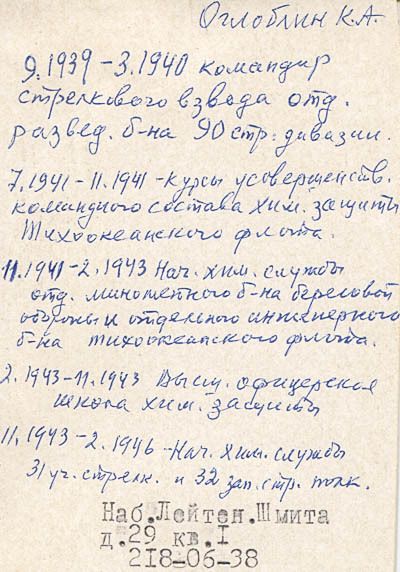 Оглоблин К.А.
9.1939 – 3.1940 командир
стрелкового взвода отд.
развед. б-на 90 стр. дивазии.
7.1941 – 11.1941 – курсы усовершенств.
командного состава хим. защиты
Тихоокеанского флота.
11.1941 – 2.1943 Нач. хим. службы
отд. минометного б-на береговой
обороны и отдельного инженерного
б-на тихоокеанского флота.
2.1943 – 11.1943 Высш. офицерская
школа хим. защиты
11.1943 – 2.1946 – Нач. хим. службы
31 уч. стрелк. и 32 зап. стр. полк.
Наб.Лейтен.Шмита
д.29 кв.I
218-06-38